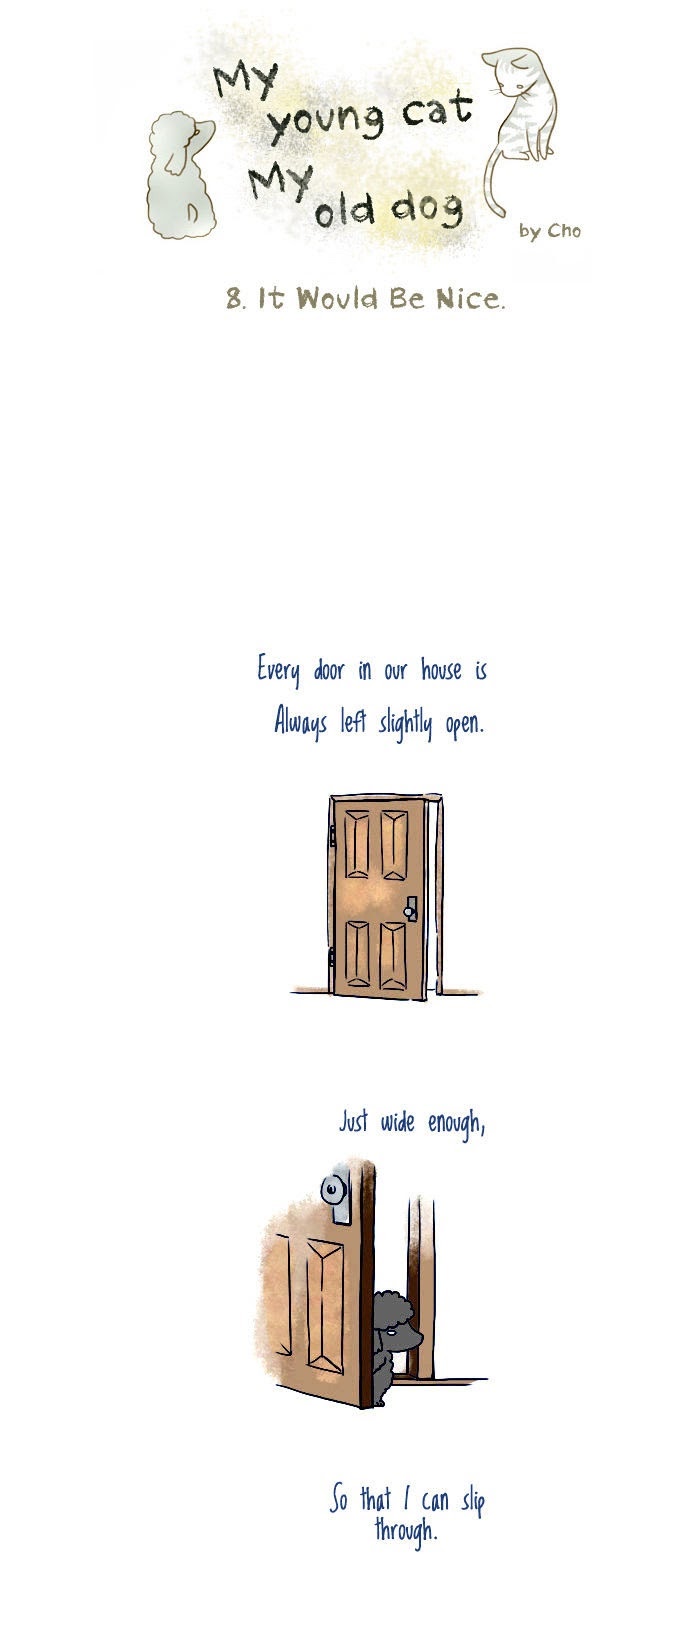 My
young cat
My
old dog
by Cho
8. It Would Be Nice.
Every door in our house is
Always left slightly open.
Just wide enough,
So that I can slip
through.